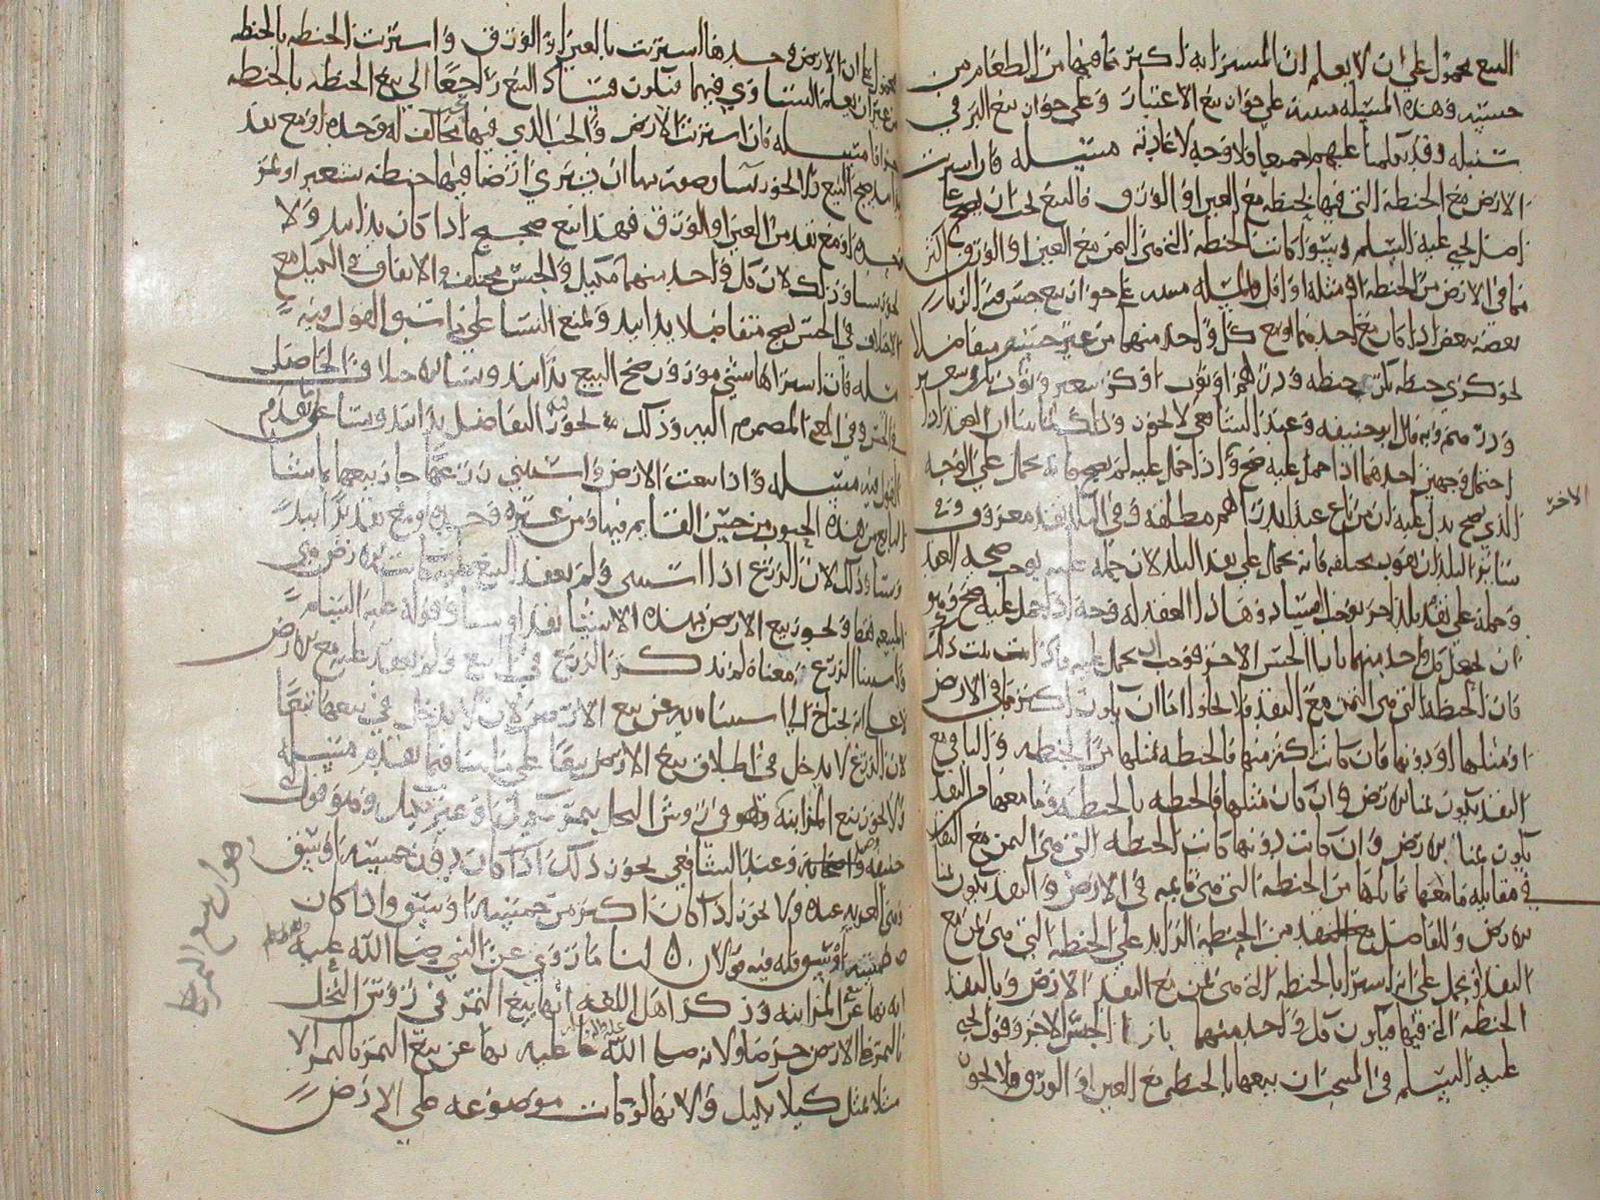 البيع محمول على ان لا يعلم ان المشترا به اكثر مما فيها من الطعام من
جنسه وهذه المسئله مبنيه على جواز بيع الاعتبار وعلى جواز بيع البر في
سنبله وقد تكلمنا عليهما جميعا فلا وجه لاعادته مسئله فان اشريت
الارض مع الحنطه التي فيها بحنطه مع العين او الورق فالبيع يجب ان يصح على
اصل يحيى عليه السلم وسوا كانت الحنطه التي هي الثمن مع العين او الورق اكثر
مما في الارض من الحنطه او مثله او اقل والمسله على جواز بيع جنس من الربا
بعضه ببعض اذا كان مع احدهما او مع كل واحد منهما من غير جنسه متفاضلا
نحو كري حنطه بكر حنطه ودرهم او ثوب او كر شعير وثوب بكر شعير
ودرهم وبه قال ابو حنيفه وعند الشافعي لا يجوز وذلك لنا ان العقد اذا
احتمل وجهين احدهما اذا حمل عليه صح واذا حمل عليه لم يصح فانه يحمل على الوجه
الذي يصح يدل عليه ان من باع عبدا بدراهم مطلقه وفي البلد نقد معروف وفي
الاخر
سائر البلدان نقود مختلفه فانه يحمل على نقد البلد لان حمله عليه يوجب صحه العقد
وحمله على نقد بلد اخر يوجب الفساد وهذا العقد له وجه اذا حمل عليه صح وهو
ان يجعل كل واحد منهما بازا الجنس الاخر فوجب ان يحمل عليه فاذا ثبت ذلك
فان الحنطه التي هي الثمن مع النقد فلا يخلوا اما ان يكون اكثر مما في الارض
او مثلها او دونها فان كانت اكثر منها فالحنطه بمثلها من الحنطه والباقي مع
النقد يكون ثمنا للارض وان كان مثلها فالحنطه بالحنطه وما معها من النقد
يكون ثمنا للارض وان كانت دونها كانت الحنطه التي هي الثمن مع النقد
في مقابله ما معها مما يماثلها من الحنطه التي هي قايمه في الارض والنقد يكون ثمنا
للارض وللفاضل من الحنطه الزايد على الحنطه التي هي ثمن مع
النقد او يحمل على انه اشترا بالحنطه التي هي ثمن مع النقد الارض وبالنقد
الحنطه التي فيها فيكون كل واحد منهما بازا الجنس الاخر وقول يحيى
عليه السلم في المنتخب ان بيعها بالحنطه مع العين او الورق فلا يجوز
محمول على ان الارض وحدها اشتريت بالعين او الورق واشتريت الحنطه بالحنطه
من غير ان يعلم التساوي فيهما فيكون فساد البيع راجعا الى بيع الحنطه بالحنطه
جزافا مسئله فان اشتريت الارض والحب الذي فيها بحب مخالف له وحده او مع نقد
يدا بيد صح البيع ولا يجوز نسأ وصورته ان يشتري ارضا فيها حنطه بشعير او تمر
وحده او مع نقد من العين او الورق فهذا بيع صحيح اذا كان يدا بيد ولا
يجوز نسا وذلك لان كل واحد منهما مكيل والجنس مختلف والاتفاق في الكيل مع
الاختلاف في الجنس يصح متفاضلا يدا بيد ويمنع النسا على ما تقدم القول فيه
مسئله فان اشتراها بشي موزون صح البيع يدا بيد ونسا للاختلاف الحاصل
في الجنس وفي المعنى المضموم اليه وذلك يجوز فيه التفاضل يدا بيد ونسا على ما تقدم
القول فيه مسئله واذا بيعت الارض واستثني زرعها جاز بيعها بما شا
البايع من هذه الحبوب من جنس القايم فيها ومن غيره وحده او مع نقد يدا بيد
ونسا وذلك لان الزرع اذا استثني ولم يعقد البيع عليه كانت الارض هي
المبيعه فقط ويجوز بيع الارض بهذه الاشيا نقدا ونسا وقوله عليه السلم
واستثنا الزرع معناه لم يذكر الزرع في البيع ولم يعقد عليه مع الارض
لا على انه يحتاج الى استثناه من بيع الارض لانه لا يدخل في بيعها تبعا
لان الزرع لا يدخل في اطلاق بيع الارض تبعا على ما بينا فيما تقدم مسئله
ولا يجوز بيع المزابنه وهو في روس النخل بتمر مكيل او غير مكيل وهو قول
حنيفه واصحابه وعند الشافعي يجوز ذلك اذا كان دون خمسه اوسق
وهي العريه عنده ولا يجوز اذا كان اكثر من خمسه اوسق واذا كان
خمسه اوسق فله فيه قولان لنا ما روي عن النبي صلى الله عليه
انه نهى عن بيع المزابنه وذكر اهل اللغه انها بيع التمر في روس النخل
بالتمر في الارض خرصا ولانه صلى الله عليه نهى عن بيع التمر بالتمر الا
مثلا بمثل كيلا بكيل ولانها لو كانت موضوعه على الارض